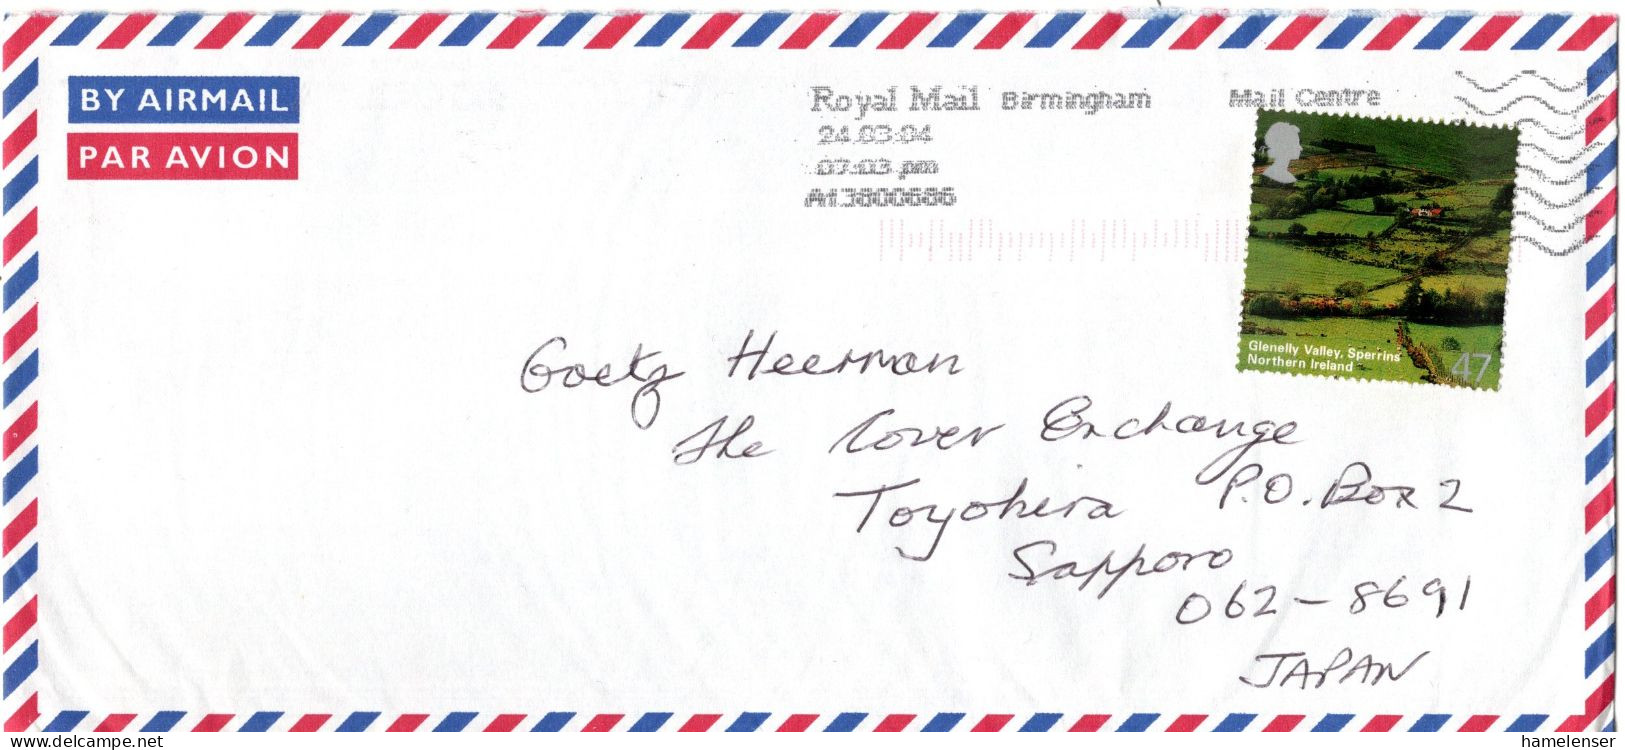 BY AIRMAIL
PAR AVION
Royal Mail Birmingham Mail Centre
24-03-04
07:03 pm
Glenelly Valley, Sperrins
Northern Ireland
47
Goetz Heerman
The Cover Exchange
Toyohira P.O. Box 2
Sapporo
062-8691
JAPAN
www.delcampe.net
hamelenser